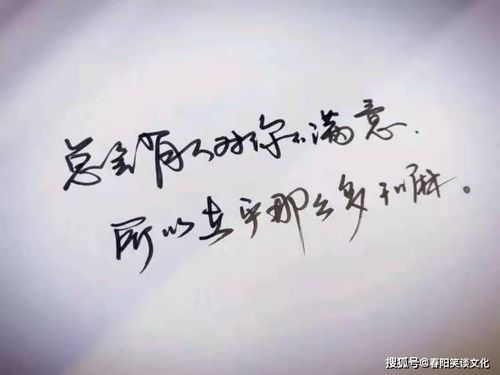 总会有人对你不满意.
所以在乎那么多干嘛。
搜狐号@春阳笑谈文化